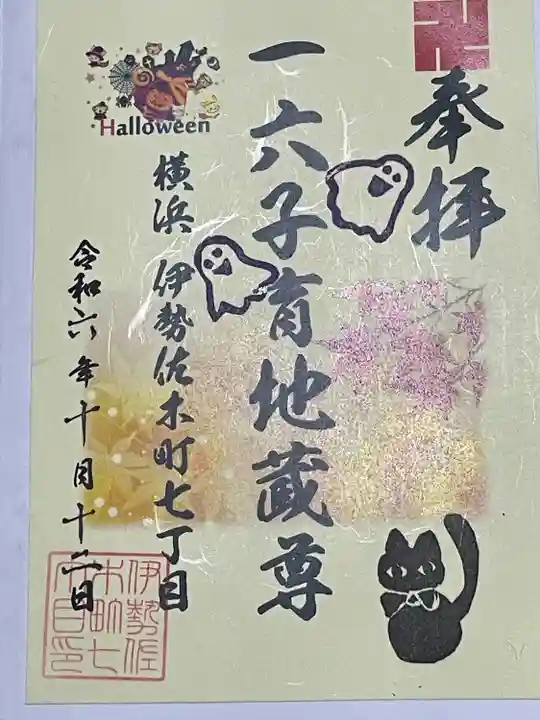 奉拝
一六子育地蔵尊
Halloween
横浜 伊勢佐木町七丁目
令和六年十月十二日
伊勢佐
木町七
丁目印